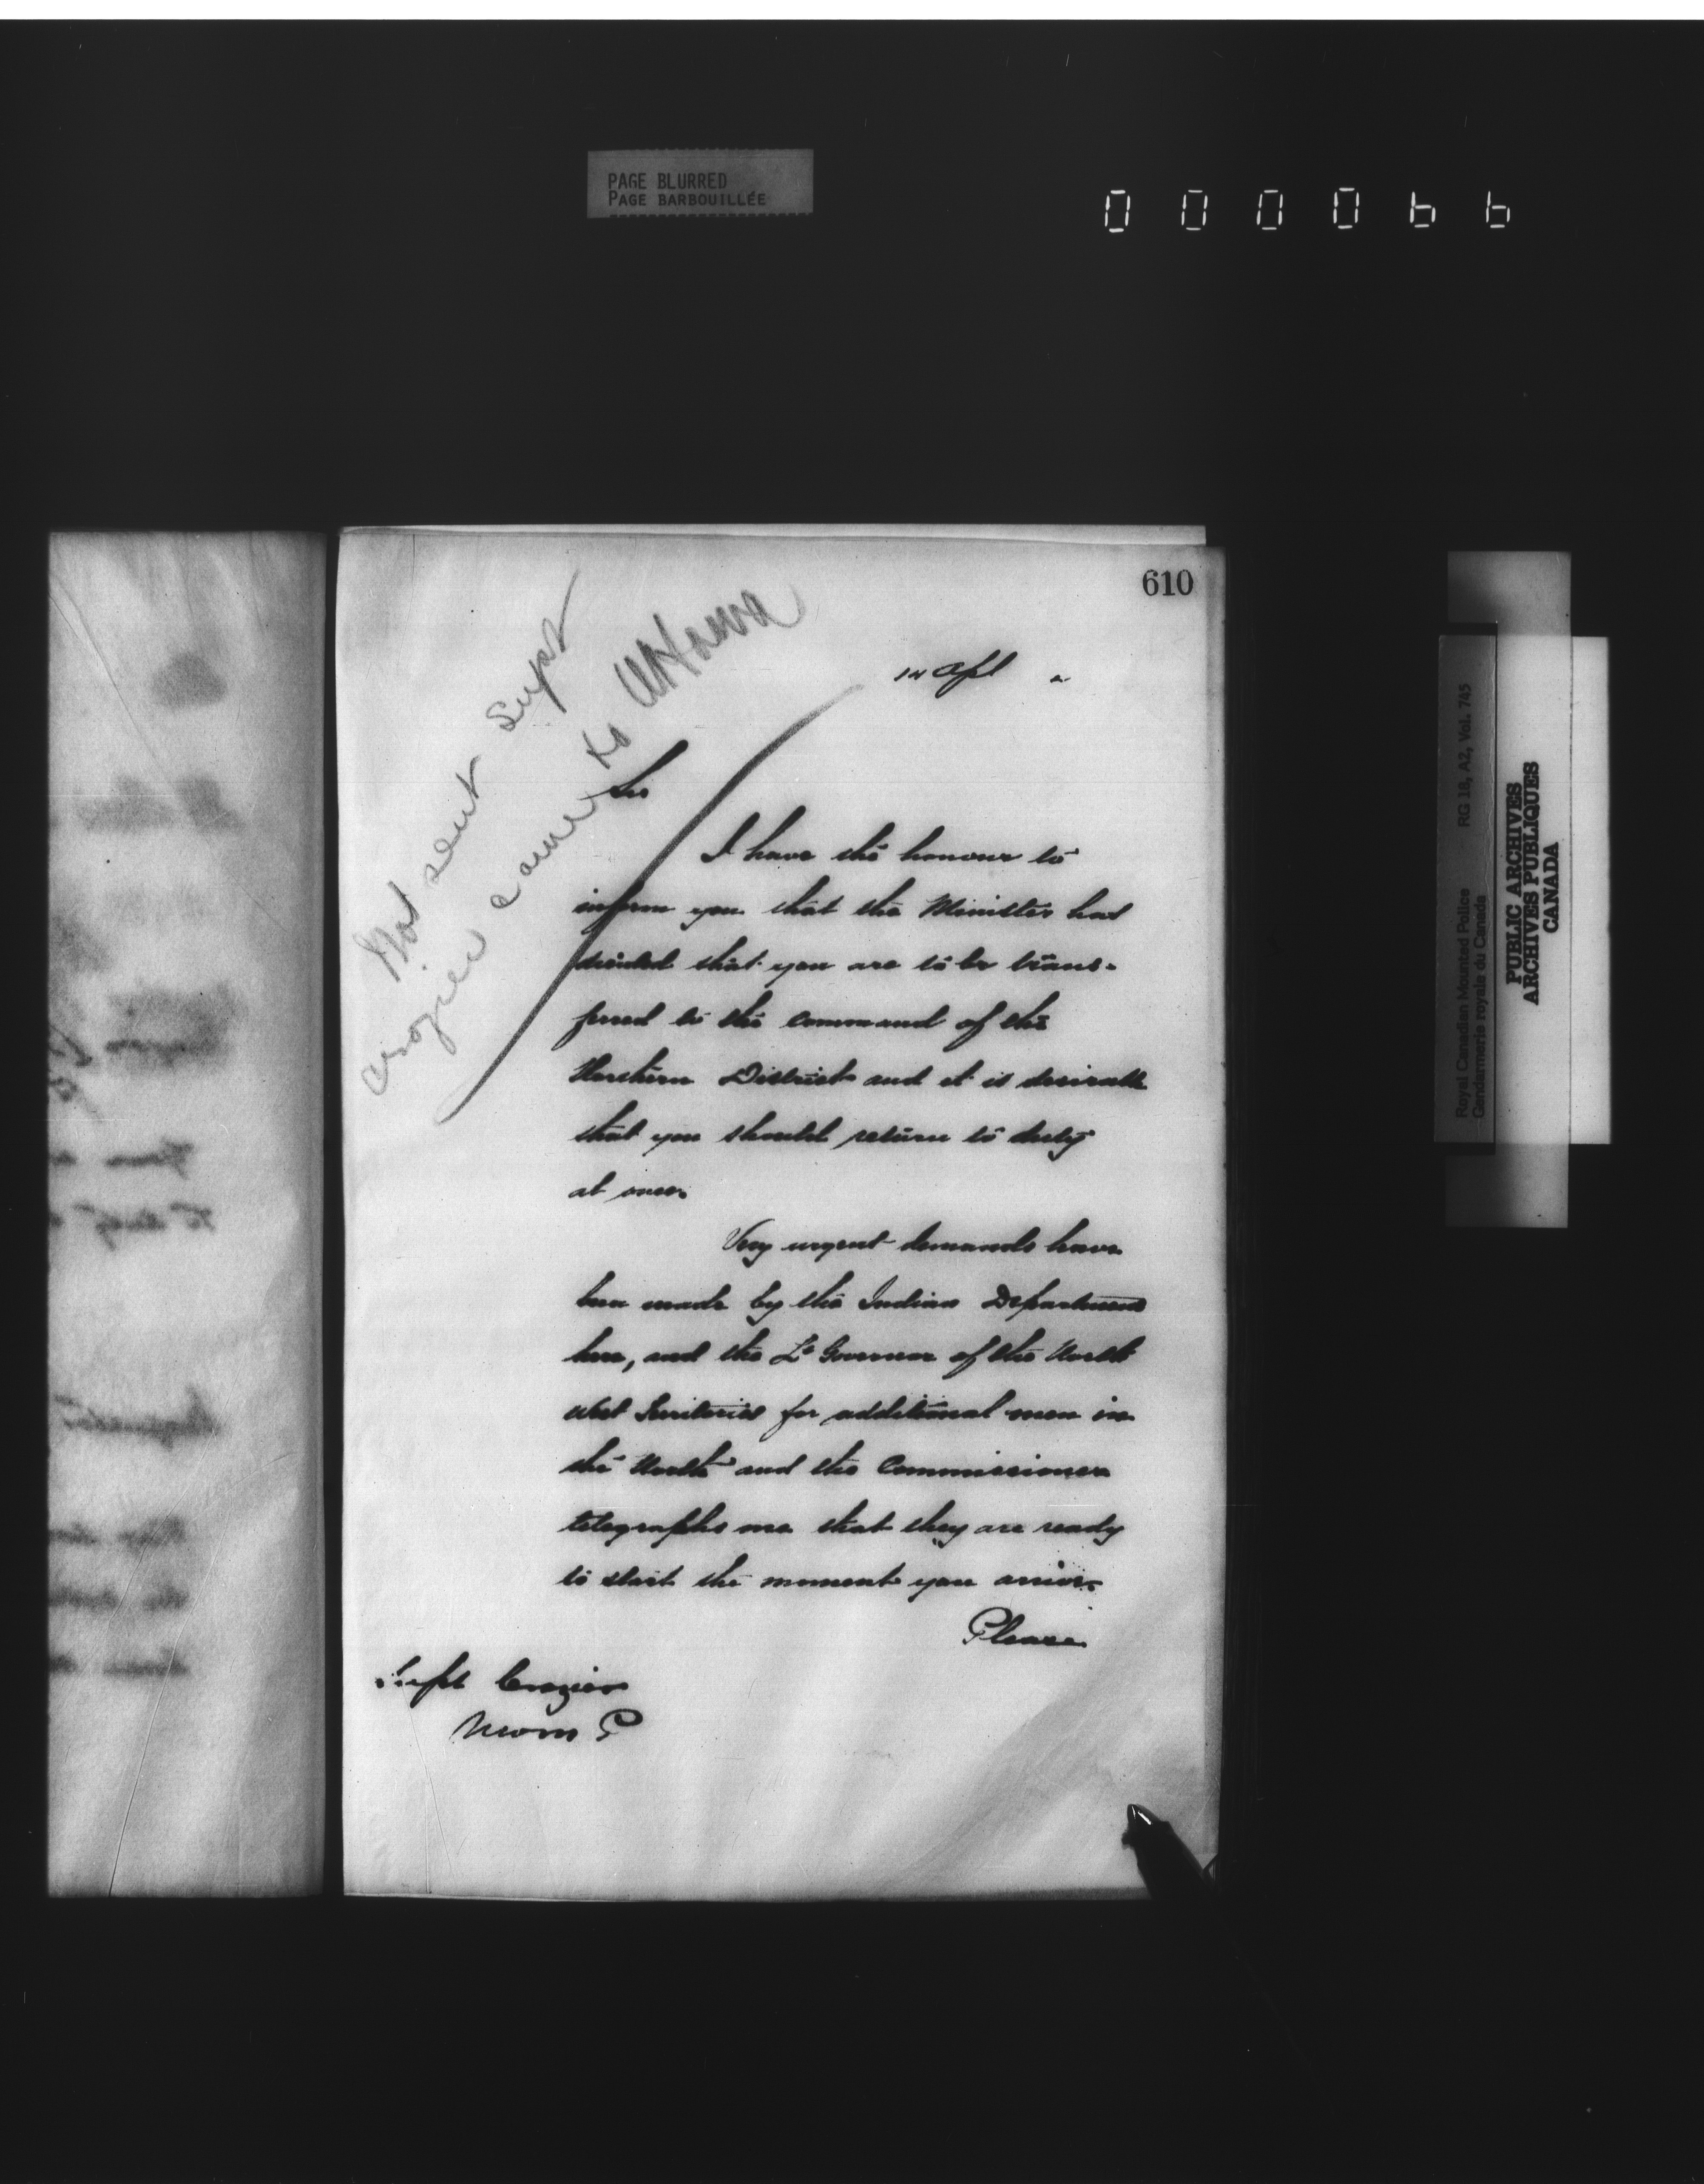 PAGE BLURRED
PAGE BARBOUILLÉE
000066
610
Not sent Supt
Crozier came to Ottawa
14 Apl
Sir
I have the honour to
inform you that the Minister has
decided that you are to be trans-
ferred to the command of the
Northern District and it is desirable
that you should return to duty
at once.
Very urgent demands have
been made by the Indian Department
here, and the Lt Governor of the North
West Territories for additional men in
the North and the Commissioner
telegraphs me that they are ready
to start the moment you arrive.
Please
Supt Crozier
NWM P
Royal Canadian Mounted Police RG 18, A2, Vol. 745
Gendarmerie royale du Canada
PUBLIC ARCHIVES
ARCHIVES PUBLIQUES
CANADA